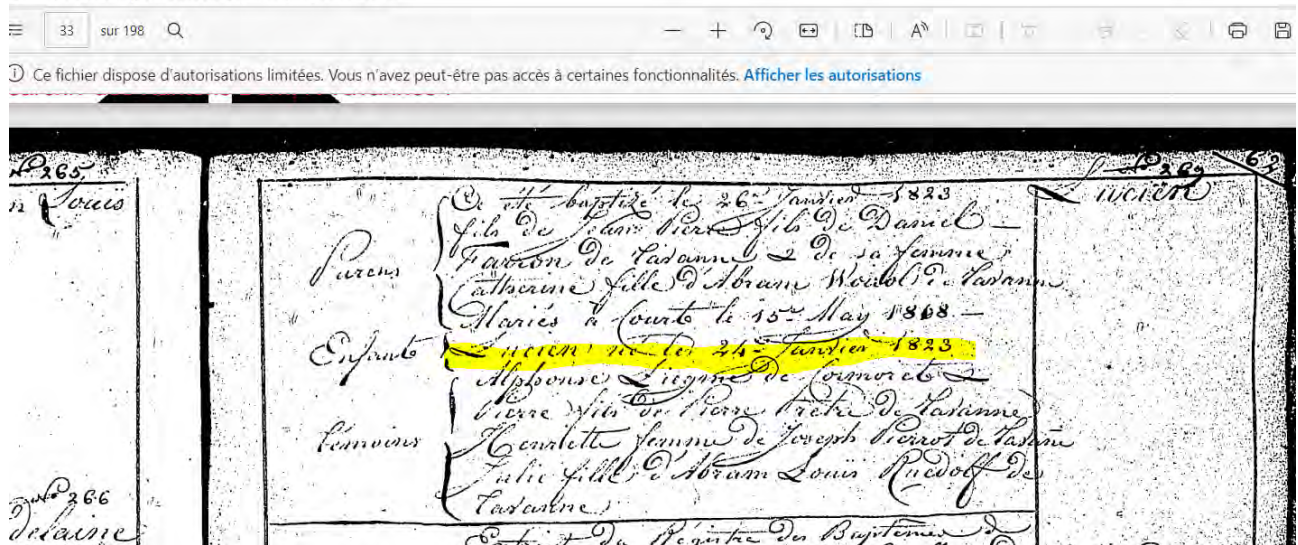 33 sur 198
Ce fichier dispose d'autorisations limitées. Vous n'avez peut-être pas accès à certaines fonctionnalités. Afficher les autorisations
No 265
Louis
No 269
Lucien
été baptizé le 26e Janvier 1823
fils de Jean Pierre fils de Daniel
Parens
Farron de Tavanne & de sa femme
Catherine fille d'Abram de Tavanne
Mariés à Court le 15e May 1818
Enfants
Lucien né le 24e Janvier 1823
Alphonse Liegme de Cormoret &
Pierre fils de Pierre Prêtre de Tavanne
Témoins
Henriette femme de Joseph Pierrot de Tavanne
Julie fille d'Abram Louis Ruedolf de
Tavanne
No 266
delaine
Extrait du Régistre des Baptemes de